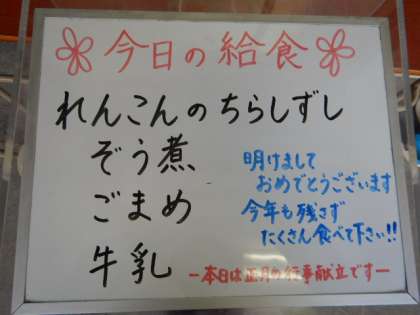 今日の給食
れんこんのちらしずし
ぞう煮
ごまめ
牛乳
明けまして
おめでとうございます
今年も残さず
たくさん食べて下さい!!
ー本日は正月の行事献立ですー